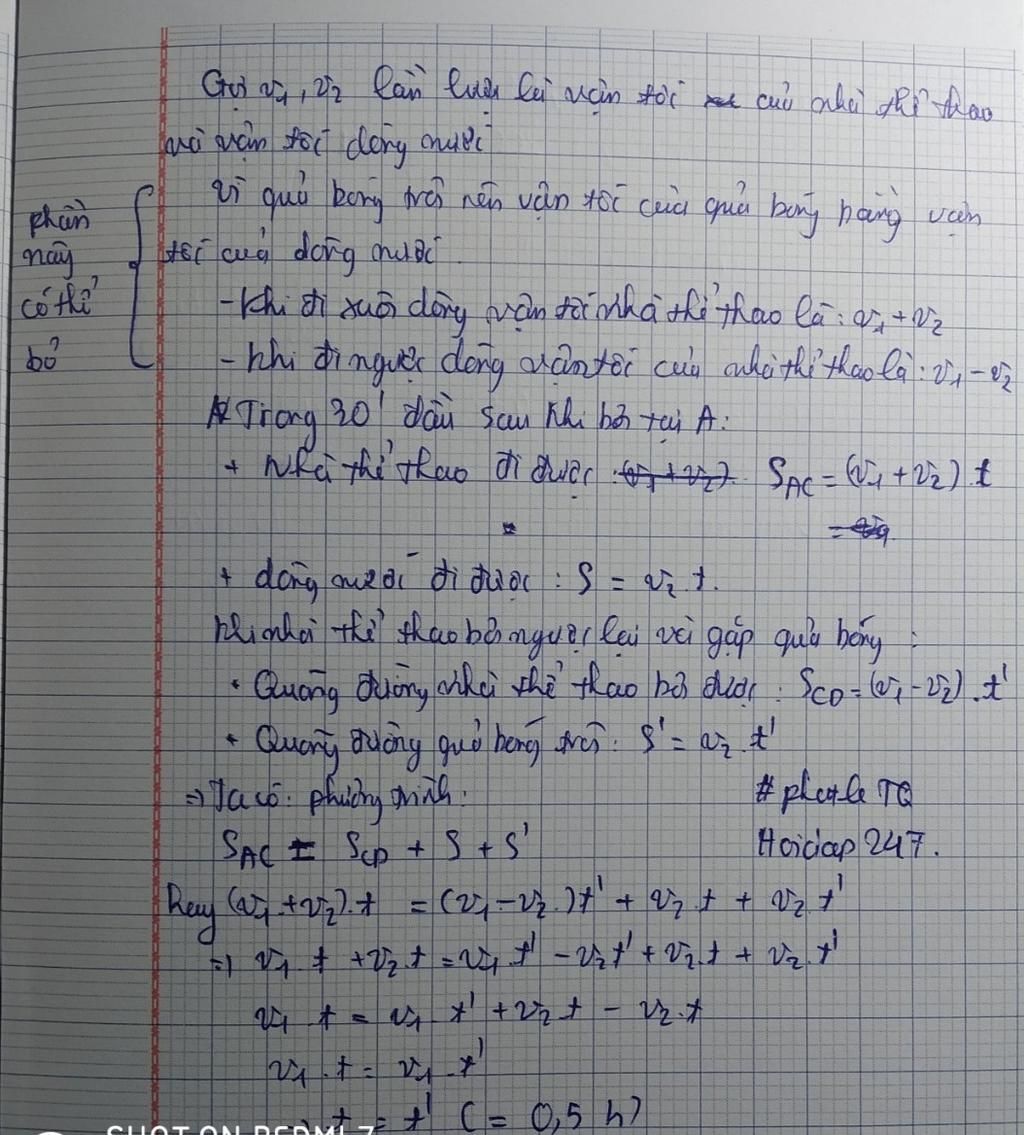 Gọi v₁, v₂ lần lượt là vận tốc của nhà thể thao
và vận tốc dòng nước
Vì quả bóng trôi nên vận tốc của quả bóng bằng vận
tốc của dòng nước.
phần
này
có thể
bỏ
- Khi đi xuôi dòng vận tốc nhà thể thao là: v₁ + v₂
- Khi đi ngược dòng vận tốc của nhà thể thao là: v₁ - v₂
Trong 30' đầu sau khi bơi tại A:
+ Nhà thể thao đi được S_AC = (v₁ + v₂).t
+ dòng nước đi được: S = v₂.t.
Khi nhà thể thao bơi ngược lại và gặp quả bóng:
• Quãng đường nhà thể thao bơi được: S_CD = (v₁ - v₂).t'
• Quãng đường quả bóng trôi: S' = v₂.t'
⇒ Ta có: phương trình:
# phatle TQ
S_AC = S_CD + S + S'
Hoidap 247.
Hay (v₁ + v₂).t = (v₁ - v₂.)t' + v₂.t + v₂.t'
⇒ v₁.t + v₂.t = v₁.t' - v₂t' + v₂.t + v₂.t'
v₁.t = v₁.t' + v₂t - v₂.t
v₁.t = v₁.t'
t = t' (= 0,5 h)
SHOT ON REDMI 7